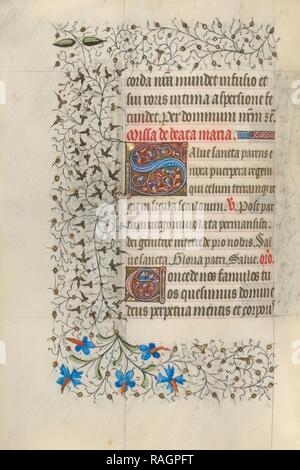 corda nr̃a mundet infusio et
sui roris intima aspersione fe
cundet. Per dominum nr̃m ꝛc̃.
Missa de beata maria.
Salue sancta parens e
nixa puerpera regem
qui celum terramq; re
git in secula seculorum. V. Post par
tum uirgo inuiolata permansisti.
dei genitrix intercede pro nobis. Sal
ue sancta. Gloria patri. Salue. or̃o.
Concede nos famulos tu
os quesumus domine
deus perpetua mentis et corpori
alamy
Image ID: RAGPFT
www.alamy.com